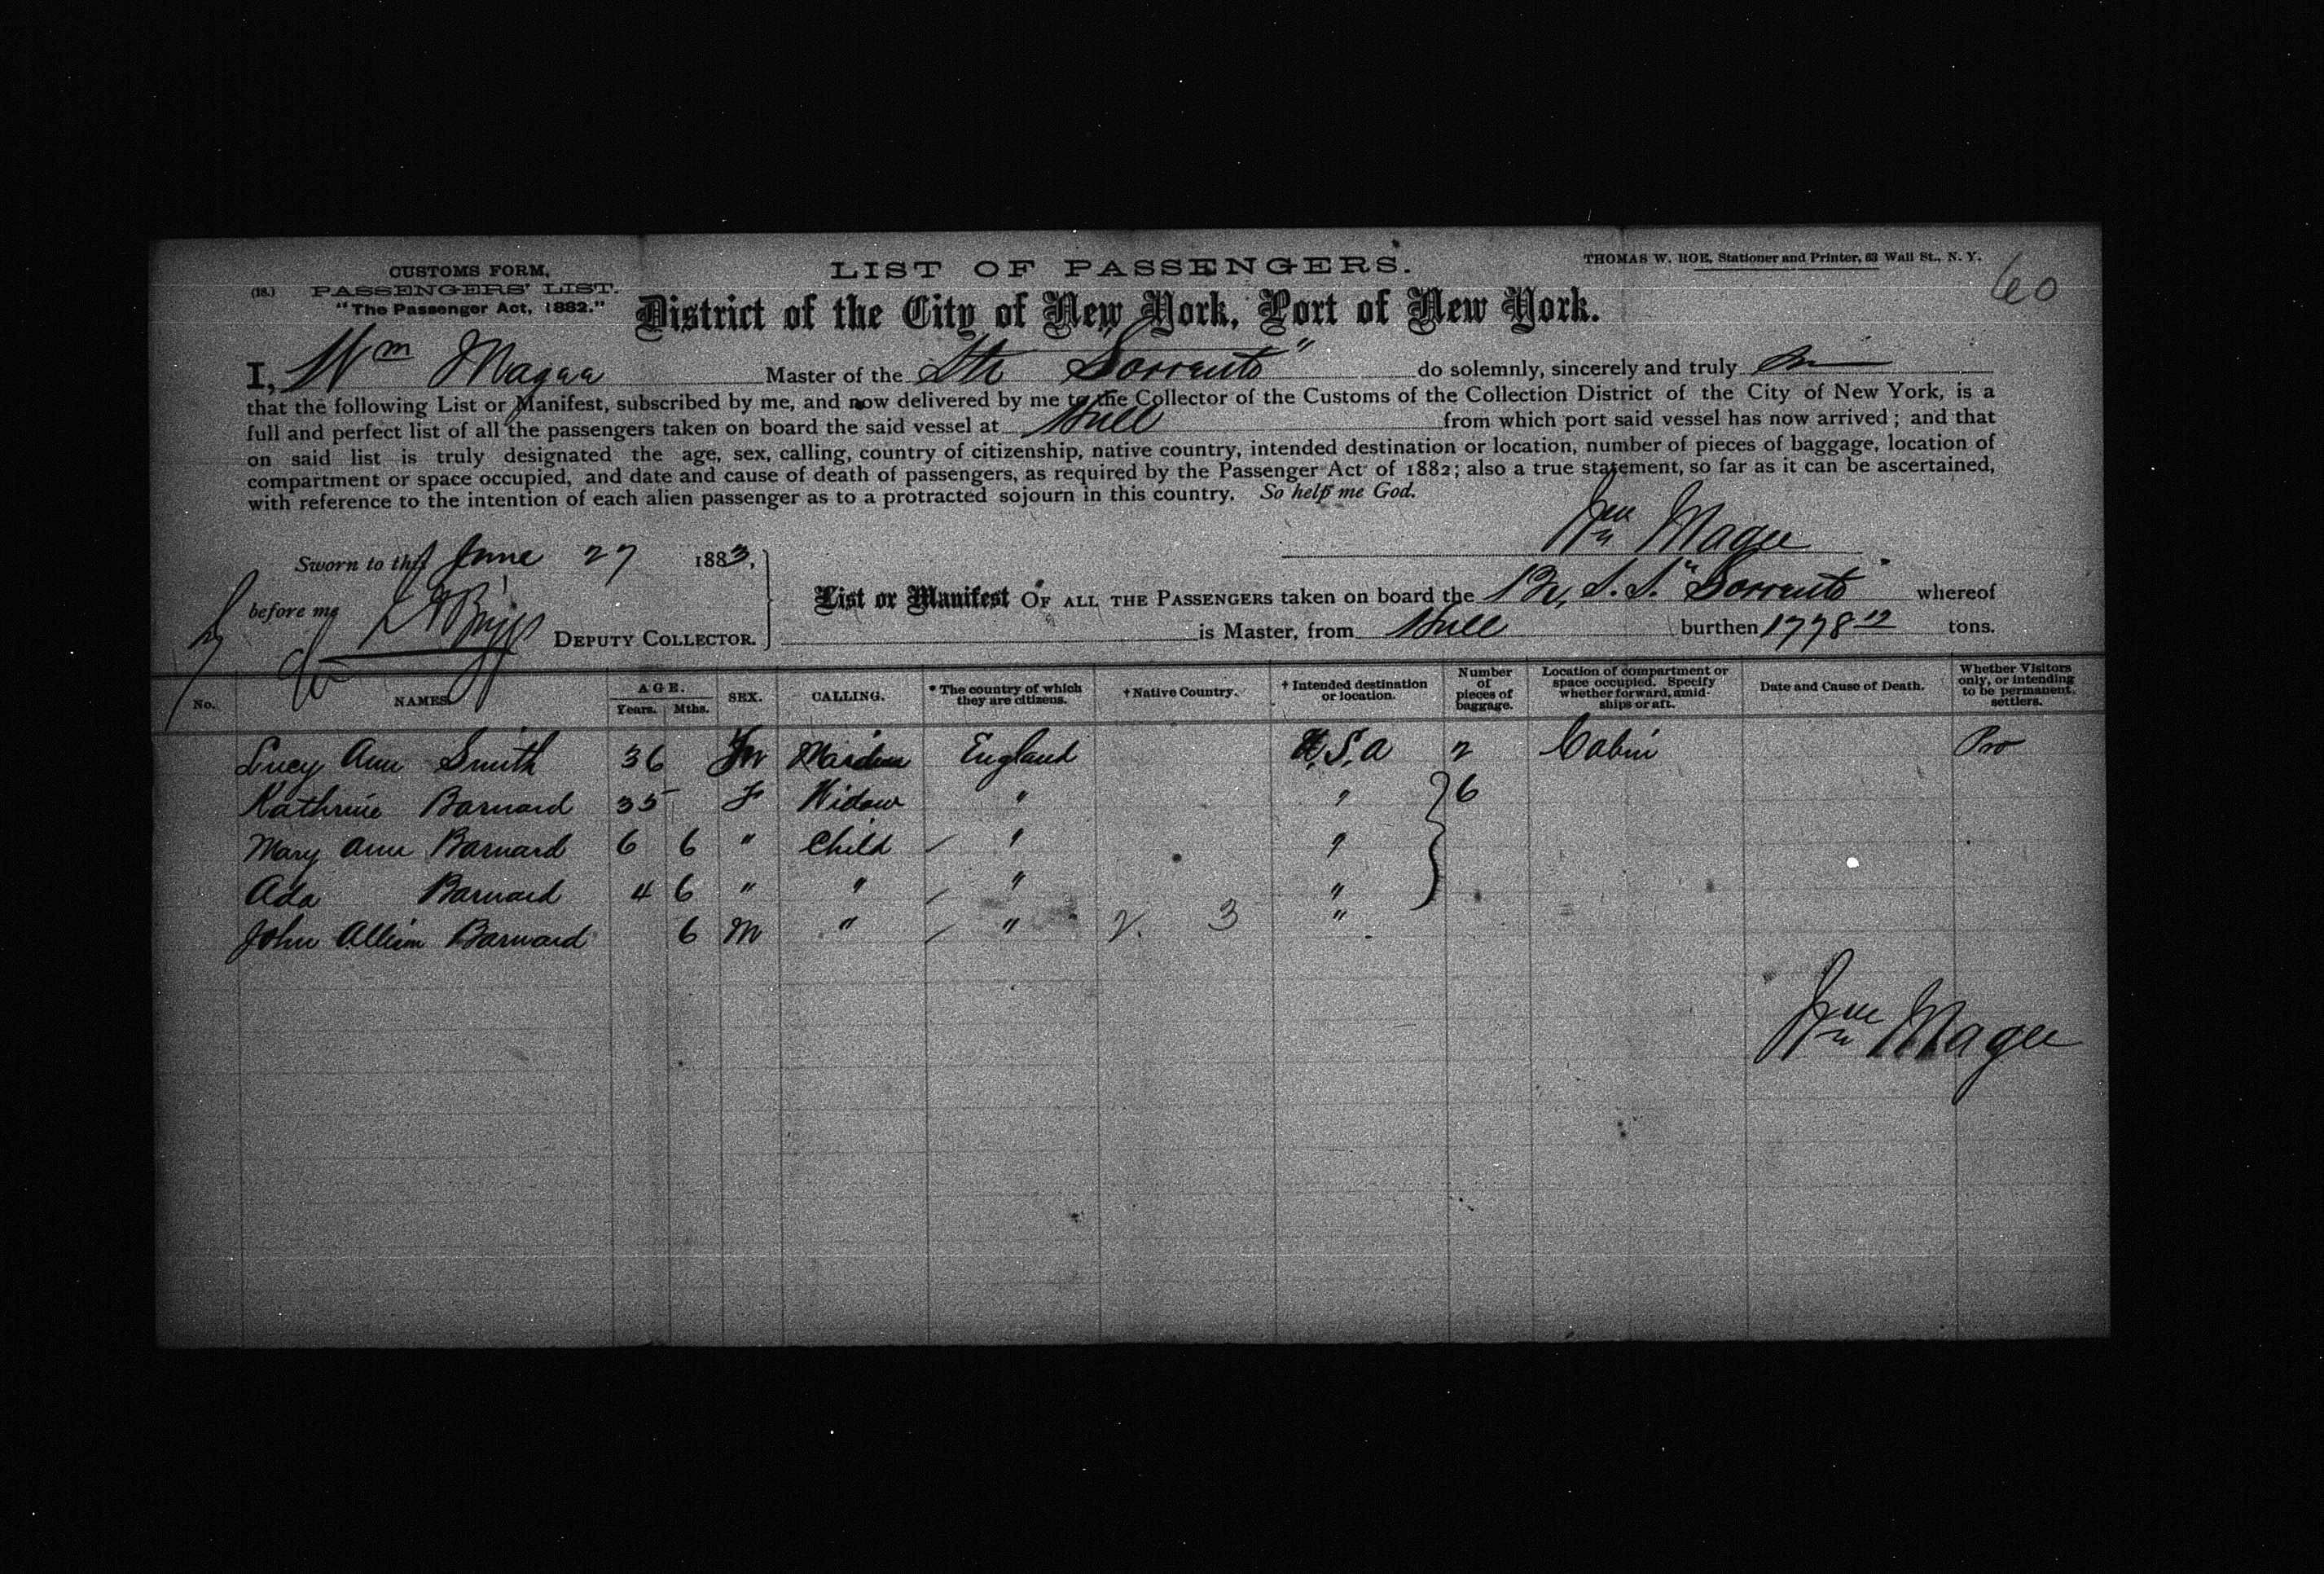 CUSTOMS FORM,
(18.) PASSENGERS' LIST.
"The Passenger Act, 1882."
LIST OF PASSENGERS.
THOMAS W. ROE, Stationer and Printer, 63 Wall St., N. Y.
60
District of the City of New York, Port of New York.
I, Wm Magee Master of the Str "Sorrento" do solemnly, sincerely and truly
that the following List or Manifest, subscribed by me, and now delivered by me to the Collector of the Customs of the Collection District of the City of New York, is a
full and perfect list of all the passengers taken on board the said vessel at Hull from which port said vessel has now arrived; and that
on said list is truly designated the age, sex, calling, country of citizenship, native country, intended destination or location, number of pieces of baggage, location of
compartment or space occupied, and date and cause of death of passengers, as required by the Passenger Act of 1882; also a true statement, so far as it can be ascertained,
with reference to the intention of each alien passenger as to a protracted sojourn in this country. So help me God.
Wm Magee
Sworn to this June 27 1883,
before me DEPUTY COLLECTOR.
List or Manifest OF ALL THE PASSENGERS taken on board the Br. S. S. "Sorrento" whereof
is Master, from Hull burthen 1778 12 tons.
No. NAMES. AGE. Years. Mths. SEX. CALLING. * The country of which they are citizens. † Native Country. † Intended destination or location. Number of pieces of baggage. Location of compartment or space occupied. Specify whether forward, amidships or aft. Date and Cause of Death. Whether Visitors only, or intending to be permanent settlers.
Lucy Ann Smith 36 Maiden England U.S.A 2 Cabin Pro
Kathrine Barnard 35 F Widow " " 6
Mary Ann Barnard 6 6 " Child " "
Ada Barnard 4 6 " " " "
John Allison Barnard 6 M " " 3 "
Wm Magee